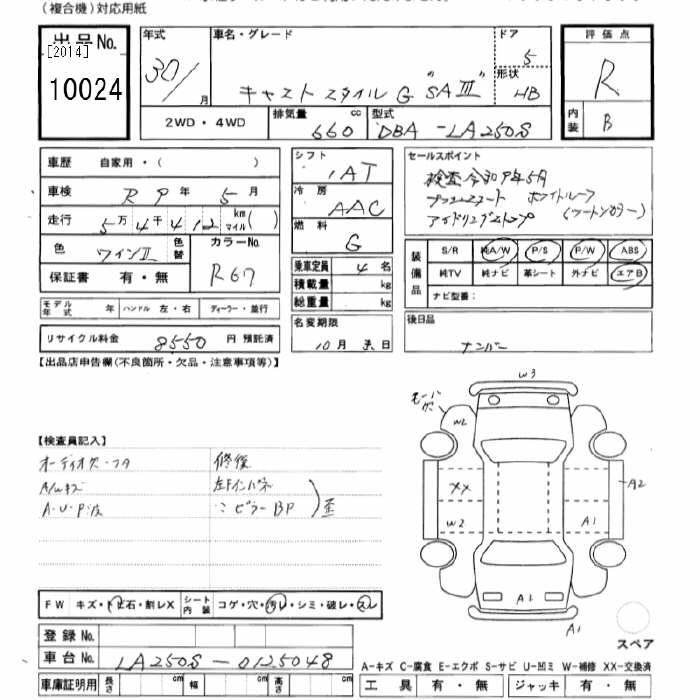 (複合機)対応用紙
出品No.
[2014]
10024
年式
30/
月
車名・グレード
キャスト スタイル G "SAⅢ"
ドア
5
形状
HB
評価点
R
内装
B
2WD・4WD
排気量
660
cc
型式
DBA-LA250S
車歴 自家用・( )
車検 R 9 年 5 月
走行 5万 4千 412 km マイル ( )
色 ワインⅡ
色替
カラーNo.
R67
保証書 有・無
モデル年式 年 ハンドル 左・右 ディーラー・並行
リサイクル料金 8550 円 預託済
シフト
IAT
冷房
AAC
燃料
G
乗車定員 4 名
積載量 kg
総重量 kg
名変期限
10月 末日
セールスポイント
検査令和9年5月
プッシュスタート ホワイトルーフ
アイドリングストップ (ツートンカラー)
装備品
S/R 純A/W P/S P/W ABS
純TV 純ナビ 革シート 外ナビ エアB
ナビ型番:
後日品
ナンバー
【出品店申告欄(不良箇所・欠品・注意事項等)】
【検査員記入】
オーディオレス・フタ
A/Wキズ
A・U・P・波
修復
左Fインパネ
〃 ピラー BP
歪
W3
モール
W2
XX
W2
A2
A1
A1
A1
スペア
FW キズ・トビ石・割レX
シート内装
コゲ・穴・汚レ・シミ・破レ・スレ
登録No.
車台No. LA250S-0125048
車庫証明用 長さ cm 幅 cm 高さ cm
A-キズ C-腐食 E-エクボ S-サビ U-凹ミ W-補修 XX-交換済
工具 有・無 ジャッキ 有・無